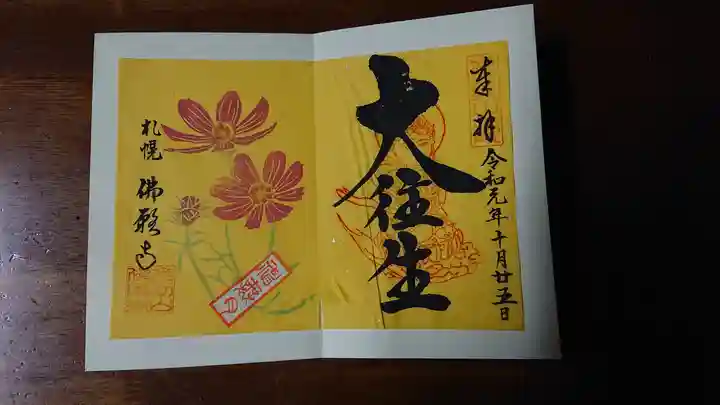 奉拝
令和元年十月廿五日
大往生
札幌 佛願寺